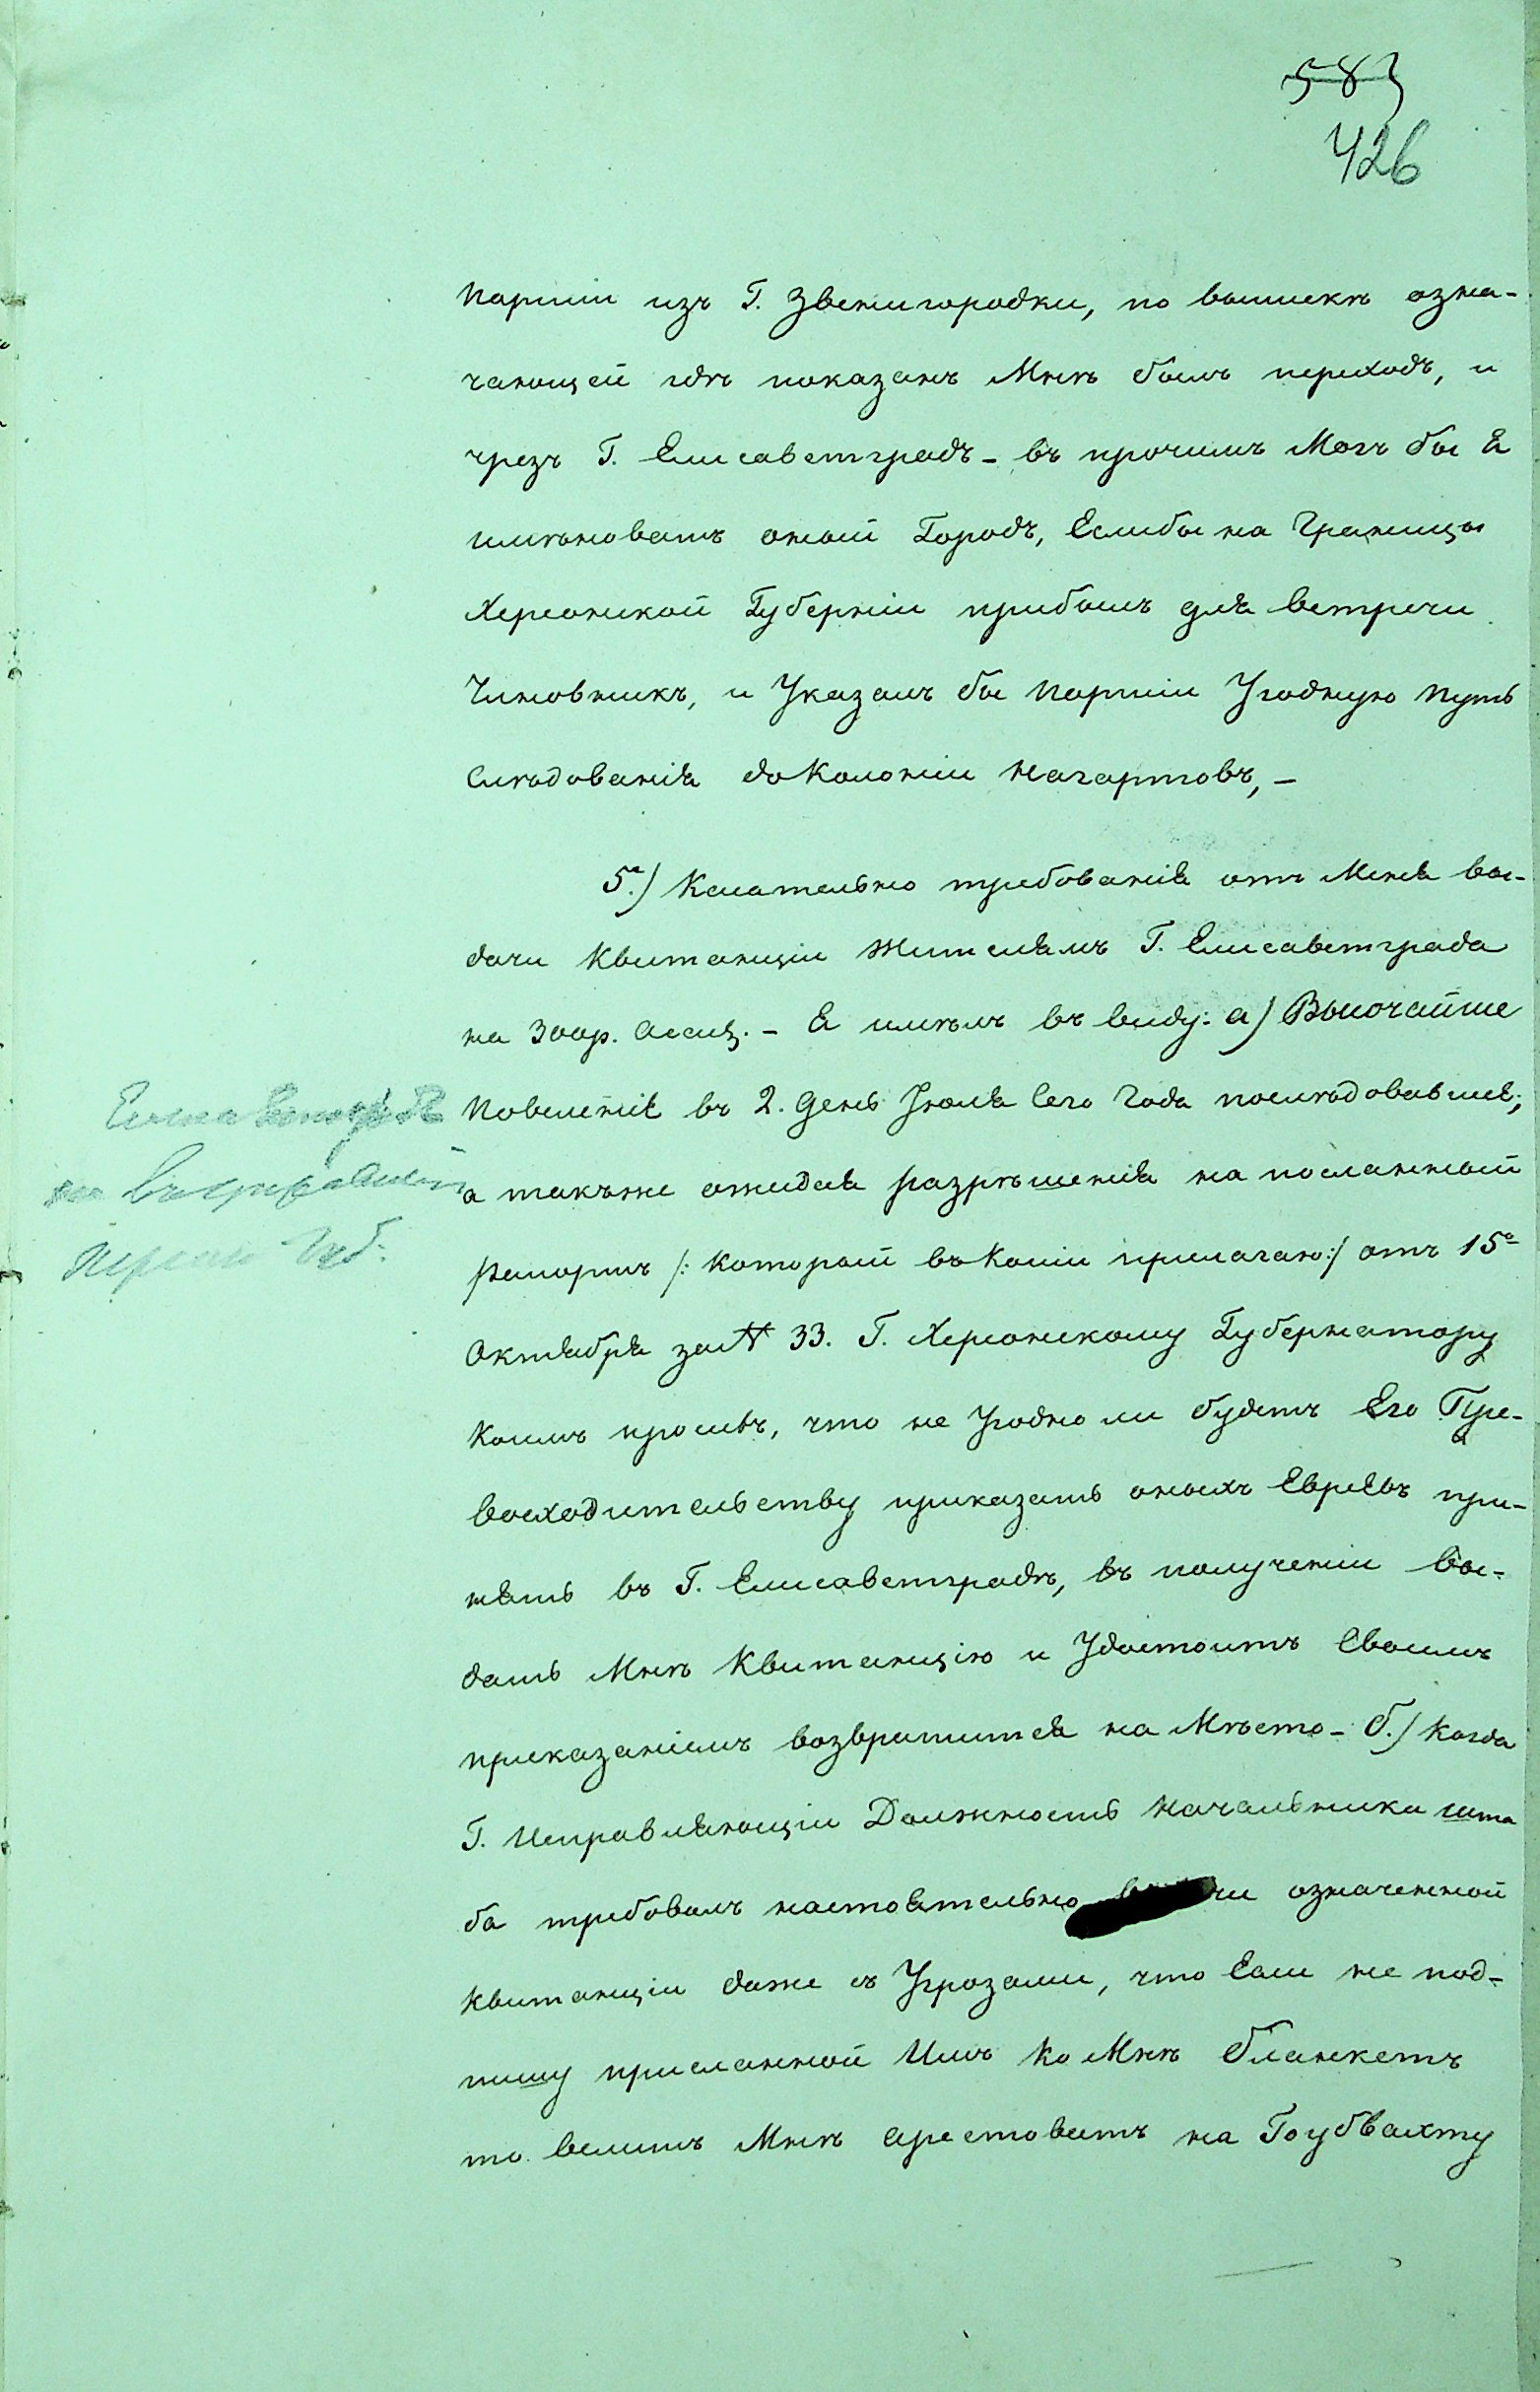 583
426
партіи изъ Г. Звенигородки, по выпискѣ озна-
чающей гдѣ показанъ Мнѣ былъ переходъ, и
чрезъ Г. Елисаветградъ - въ прочимъ Могъ бы я
имѣновать оный Городъ, Еслибы на Границы
Херсонской Губерніи прибылъ для встречи
Чиновникъ, и Указалъ бы партіи Угодную путь
Слѣдованія до Колоніи Нагартовъ, -
5е.) Касательно требованія отъ Меня вы-
дачи Квитанціи Жителямъ Г. Елисаветграда
на 300р. ассиг. - Я имѣлъ въ виду: а) Высочайше
Повеленіе въ 2. День Іюля Сего Года последовавшее;
а такъже ожидая разрѣшенія на посланный
рапортъ /: который въ Копіи прилагаю :/ отъ 15е
Октября за № 33. Г. Херсонскому Губернатору
Коимъ просивъ, что не Угодно ли будетъ Его Пре-
восходительству приказать оныхъ Евреевъ при-
нять въ Г. Елисаветградѣ, въ полученіи вы-
дать Мнѣ Квитанцію и Удостоитъ Своимъ
приказаніемъ возвратится на Мѣсто - б.) Когда
Г. Исправляющій Должность Начальника шта
ба требовалъ настоятельно означенной
Квитанціи даже съ Угрозами, что Если не под-
пишу присланной Имъ ко Мнѣ бланкетъ
то велитъ Мнѣ арестовать на Гоубвахту